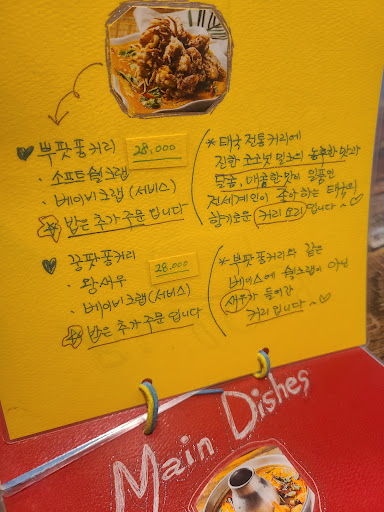 ♥ 뿌팟퐁커리 28,000
· 소프트쉘크랩
· 베이비크랩 (서비스)
☆ 밥은 추가 주문입니다
* 태국 전통커리에
진한 코코넛 밀크의 농후한 맛과
달콤, 매콤한맛이 일품인
전세계인이 좋아하는 태국의
향기로운 커리 요리입니다~♡
♥ 꿍팟퐁커리 28,000
· 왕새우
· 베이비크랩 (서비스)
☆ 밥은 추가 주문입니다
* 뿌팟퐁커리와 같은
베이스에 쉘크랩이 아닌
새우가 들어간
커리입니다~♡
Main Dishes